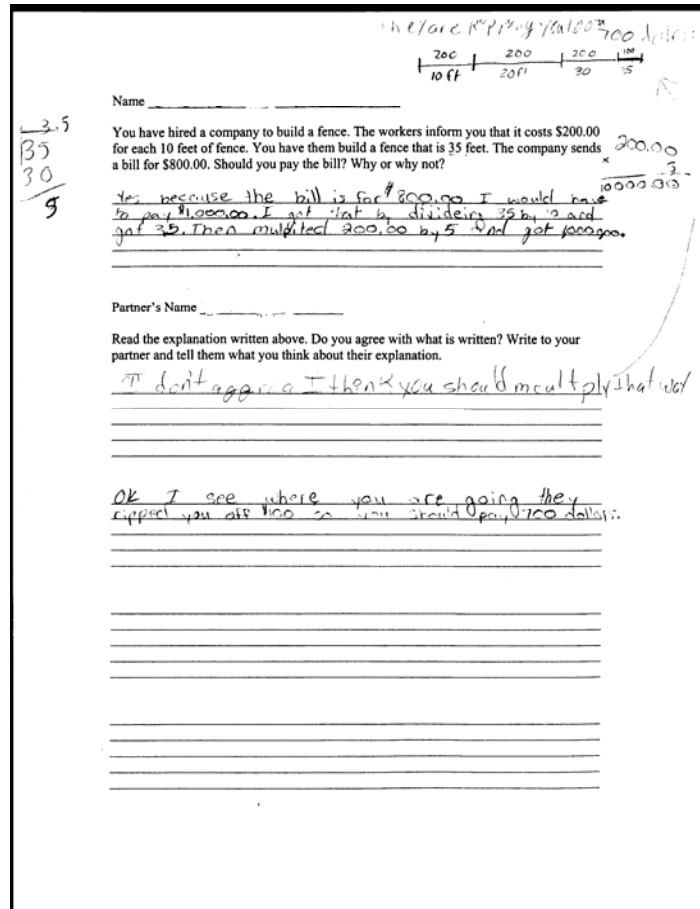 they are ripping you 700 dollars
200 200 200 100
10 ft 20ft 30 35
Name
You have hired a company to build a fence. The workers inform you that it costs $200.00
for each 10 feet of fence. You have them build a fence that is 35 feet. The company sends
a bill for $800.00. Should you pay the bill? Why or why not?
3.5
35
30
5
200.00
×
5
10000.00
Yes because the bill is for $800.00 I would have
to pay $1,000.00. I got that by divideing 35 by and
got 3.5. Then 200.00 by 5 and got 1000.00.
Partner's Name
Read the explanation written above. Do you agree with what is written? Write to your
partner and tell them what you think about their explanation.
I don't I think you should that way
OK I see where you are going they
ripped you off $100 so you should pay 700 dollars.